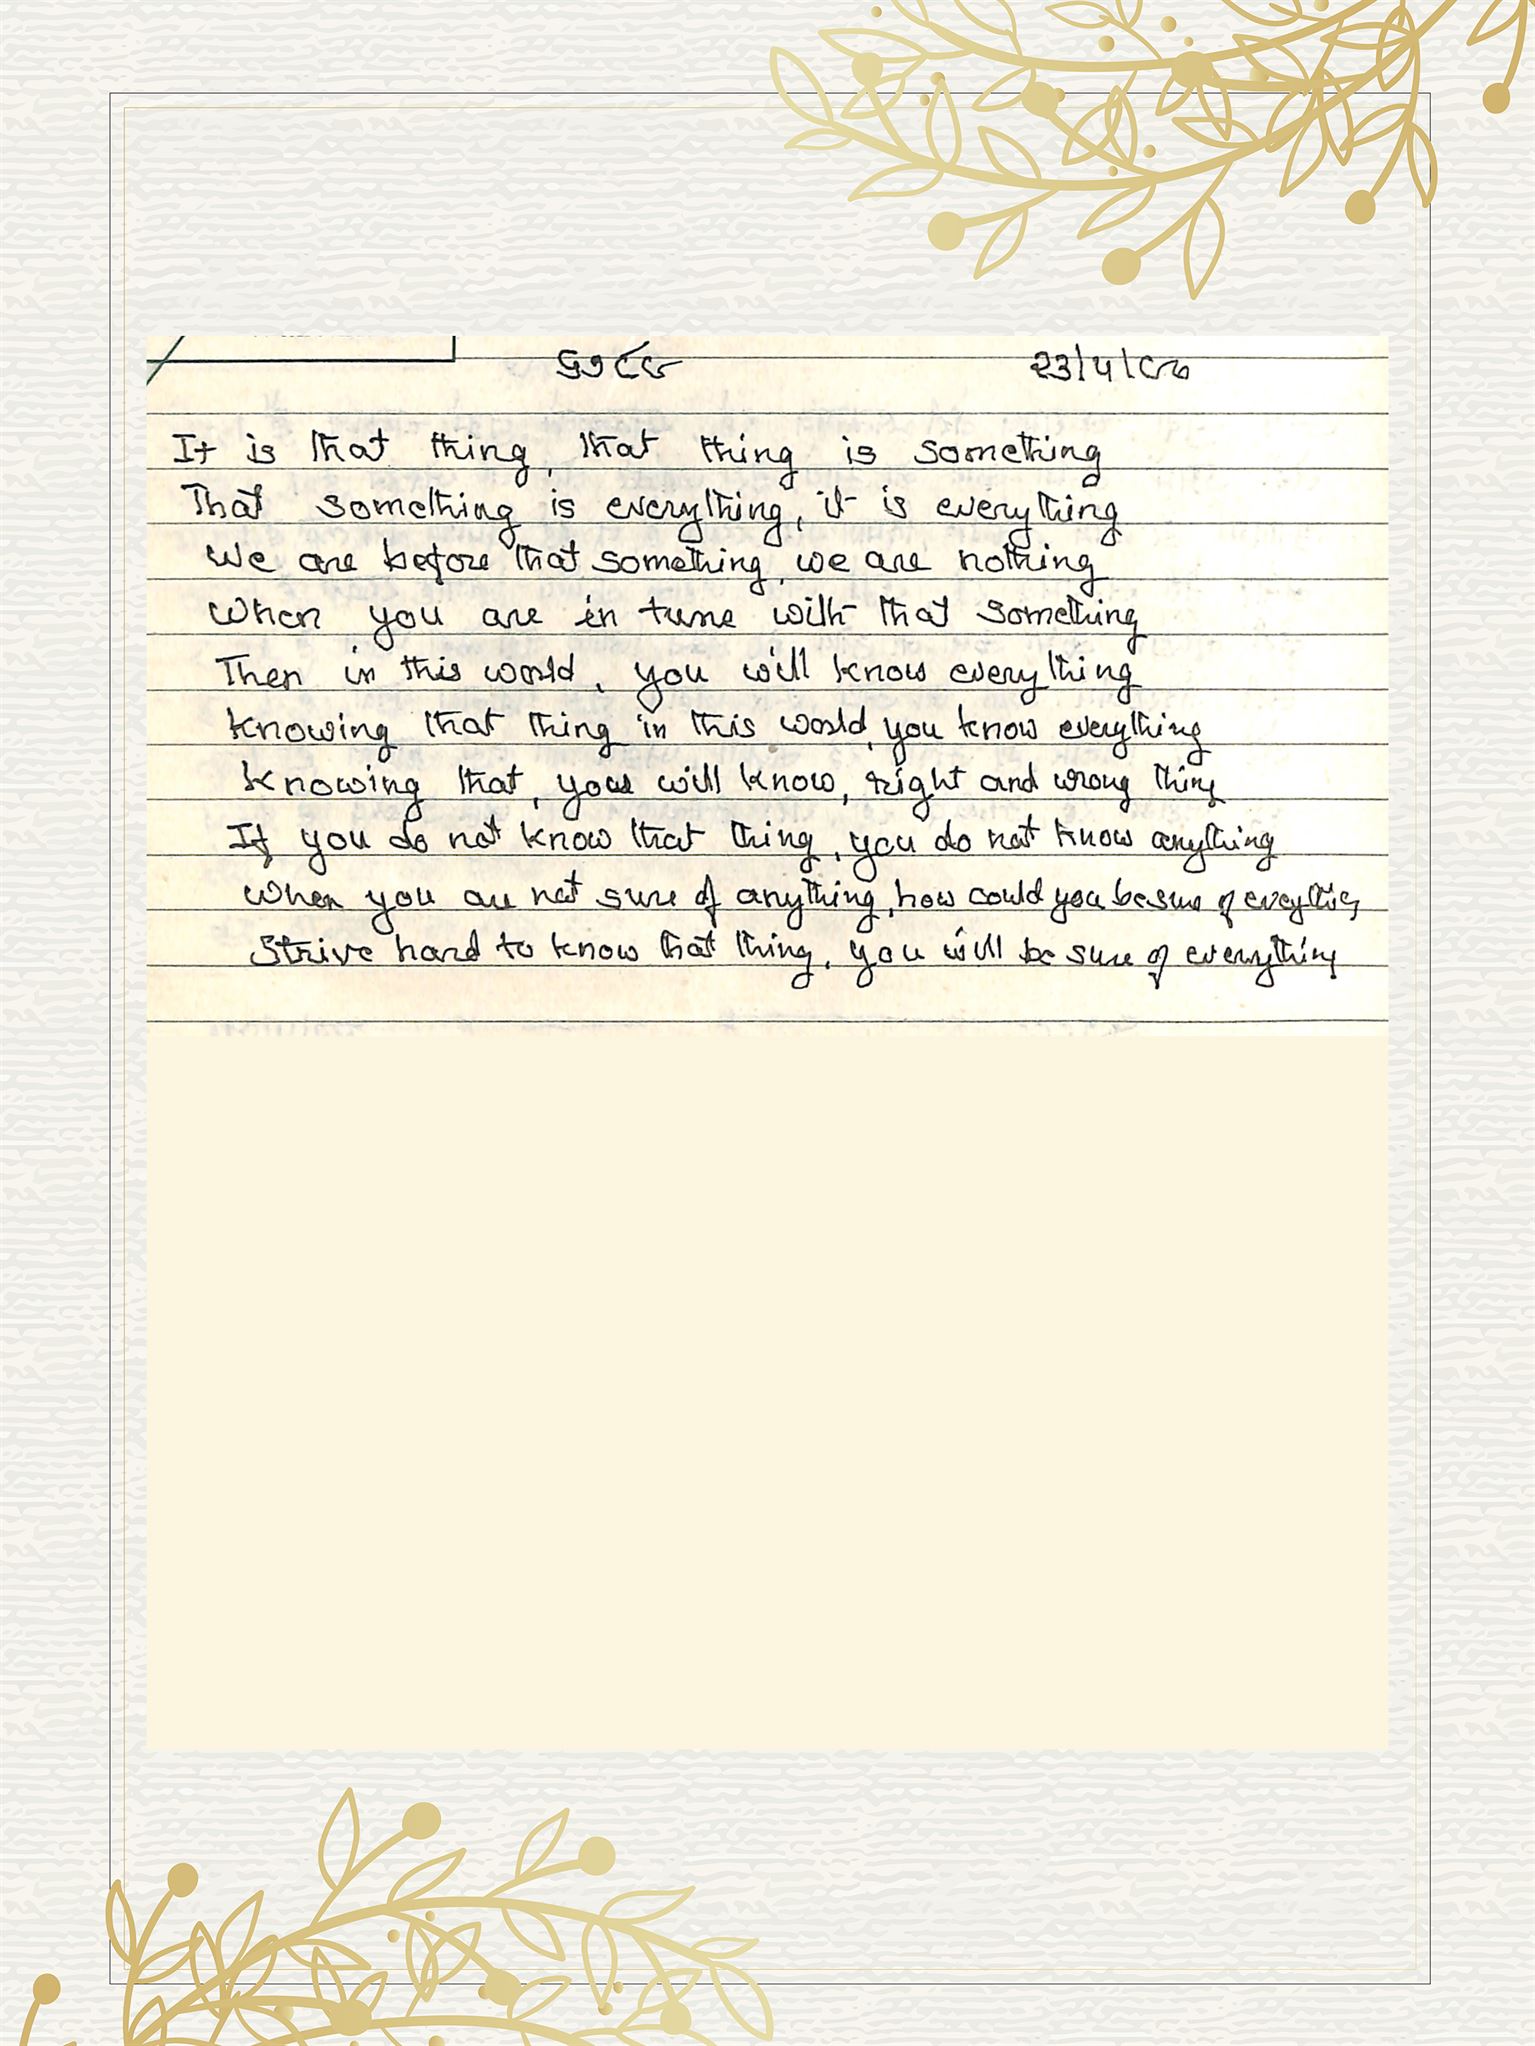 It is that thing, that thing is something
That something is everything, it is everything
We are before that something, we are nothing
When you are in tune with that something
Then in this world, you will know everything
Knowing that thing in this world, you know everything
Knowing that, you will know, right and wrong thing
If you do not know that thing, you do not know anything
When you are not sure of anything, how could you be sure of everything
Strive hard to know that thing, you will be sure of everything